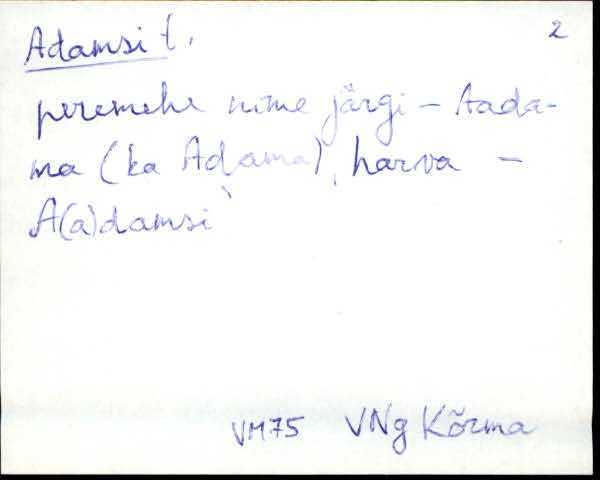 Adamsi t.
2
peremehe nime järgi – Aada-
ma (ka Adama), harva –
A(a)damsi
VM75 VNg Kõrma